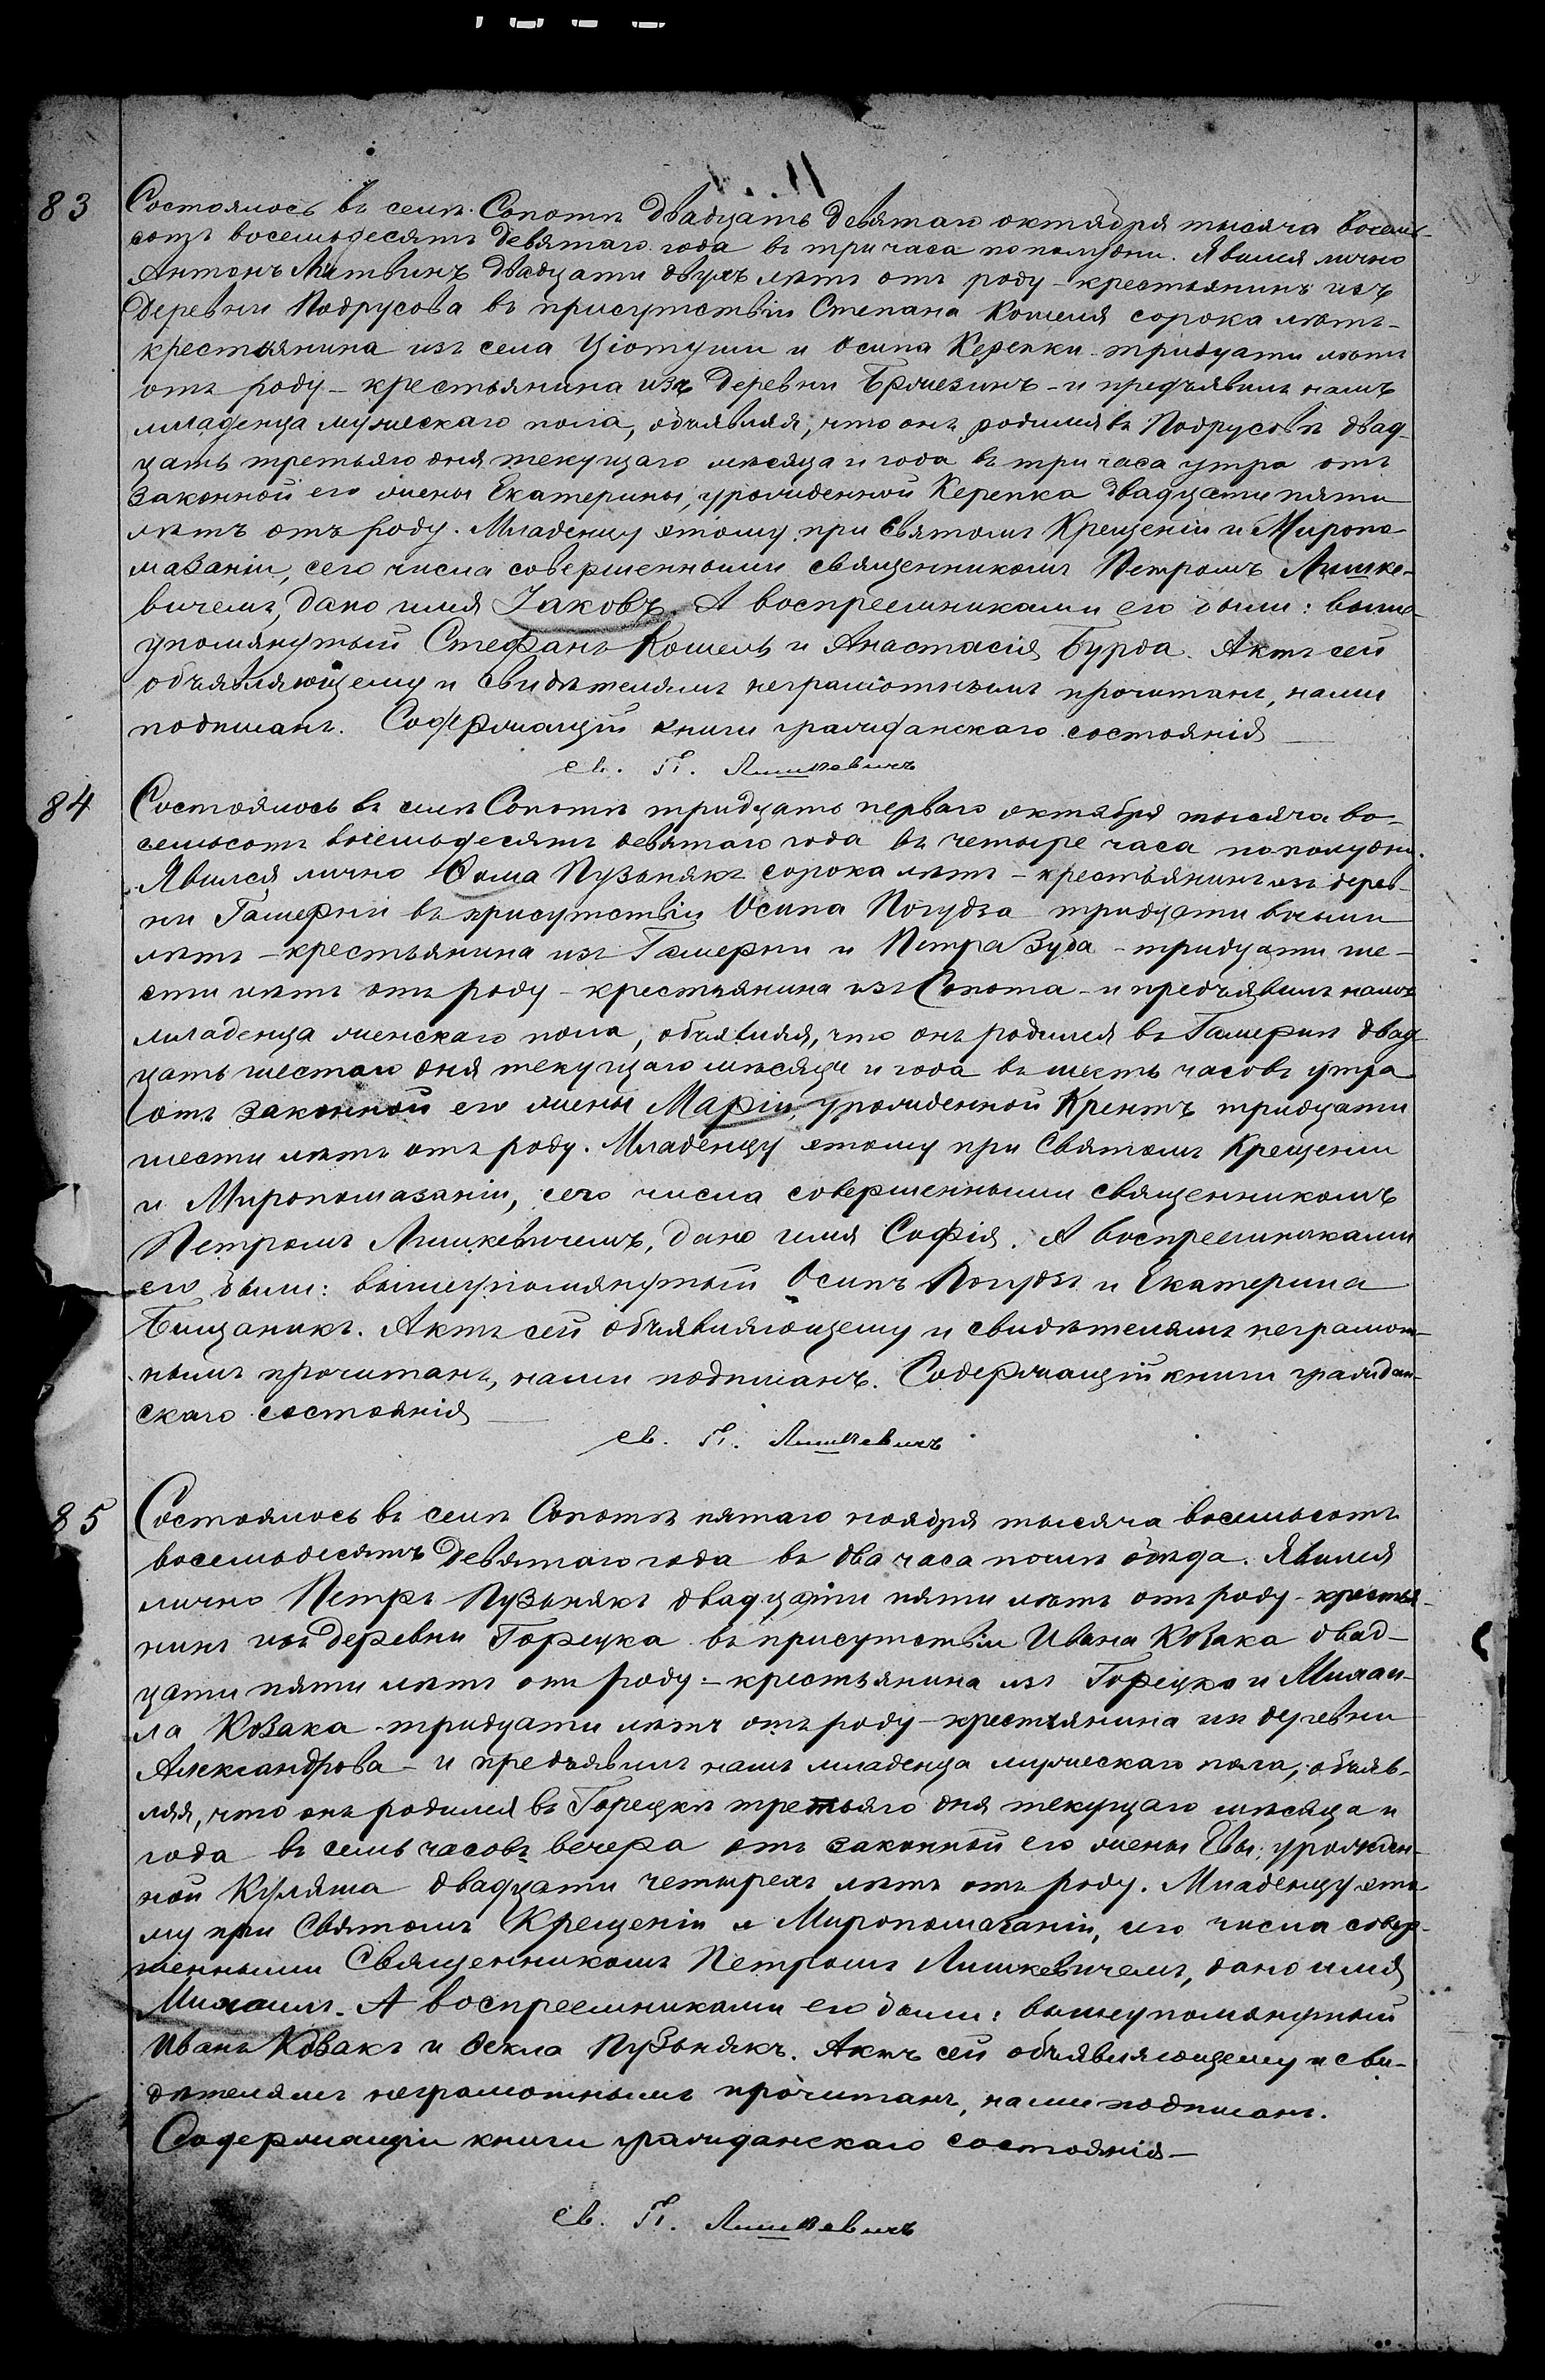 83
Состоялось въ селѣ Сопотѣ двадцать девятаго октября тысяча восемь-
сотъ восемьдесятъ девятаго года въ три часа пополудни. Явился лично
Антонъ Литвинъ двадцати двухъ лѣтъ отъ роду – крестьянинъ изъ
деревни Подрусова въ присутствіи Степана Кошеля сорока лѣтъ –
крестьянина изъ села Ціотуши и Осипа Керепки тридцати лѣтъ
отъ роду – крестьянина изъ деревни Брлезинъ – и предъявилъ намъ
младенца мужескаго пола, объявляя, что онъ родился въ Подрусовѣ двад-
цать третьяго дня текущаго мѣсяца и года въ три часа утра отъ
законной его жены Екатерины, урожденной Керепка двадцати пяти
лѣтъ отъ роду. Младенцу этому при Святомъ Крещеніи и Миропо-
мазаніи, сего числа совершенными священникомъ Петромъ Лишке-
вичемъ, дано имя Іаковъ. А воспреемниками его были: выше-
упомянутый Стефанъ Кошель и Анастасія Бурда. Актъ сей
объявляющему и свидѣтелямъ неграмотнымъ прочитанъ, нами
подписанъ. Содержащій книги гражданскаго состоянія
св. П. Лишкевичъ
84
Состоялось въ селѣ Сопотѣ тридцать перваго октября тысяча во-
семьсотъ восемьдесятъ девятаго года въ четыре часа пополудни.
Явился лично Ѳома Пузьнякъ сорока лѣтъ – крестьянинъ изъ дерев-
ни Гамерни въ присутствіи Осипа Погудза тридцати восьми
лѣтъ – крестьянина изъ Гамерни и Петра Зуба – тридцати ше-
сти лѣтъ отъ роду – крестьянина изъ Сопота – и предъявилъ намъ
младенца женскаго пола, объявляя, что онъ родился въ Гамерни двад-
цать шестаго дня текущаго мѣсяца и года въ шесть часовъ утра
отъ законной его жены Маріи, урожденной Крентъ тридцати
шести лѣтъ отъ роду. Младенцу этому при Святомъ Крещеніи
и Миропомазаніи, сего числа совершенными священникомъ
Петромъ Лишкевичемъ, дано имя Софія. А воспреемниками
его были: вышеупомянутый Осипъ Погудзъ и Екатерина
Бищаникъ. Актъ сей объявляющему и свидѣтелямъ неграмот-
нымъ прочитанъ, нами подписанъ. Содержащій книги граждан-
скаго состоянія
св. П. Лишкевичъ
85
Состоялось въ селѣ Сопотѣ пятаго ноября тысяча восемьсотъ
восемьдесятъ девятаго года въ два часа послѣ обѣда. Явился
лично Петръ Пузьнякъ двадцати пяти лѣтъ отъ роду – крестья-
нинъ изъ деревни Горецка въ присутствіи Ивана Ковака двад-
цати пяти лѣтъ отъ роду – крестьянина изъ Горецка и Михаи-
ла Ковака – тридцати лѣтъ отъ роду – крестьянина изъ деревни
Александрова – и предъявилъ намъ младенца мужескаго пола, объяв-
ляя, что онъ родился въ Горецкѣ третьяго дня текущаго мѣсяца и
года въ семь часовъ вечера отъ законной его жены Евы, урожден-
ной Куляша двадцати четырехъ лѣтъ отъ роду. Младенцу это-
му при Святомъ Крещеніи и Миропомазаніи, сего числа совер-
шенными Священникомъ Петромъ Лишкевичемъ, дано имя
Михаилъ. А воспреемниками его были: вышеупомянутый
Иванъ Ковакъ и Ѳекла Пузьнякъ. Актъ сей объявляющему и сви-
дѣтелямъ неграмотнымъ прочитанъ, нами подписанъ.
Содержащій книги гражданскаго состоянія –
св. П. Лишкевичъ